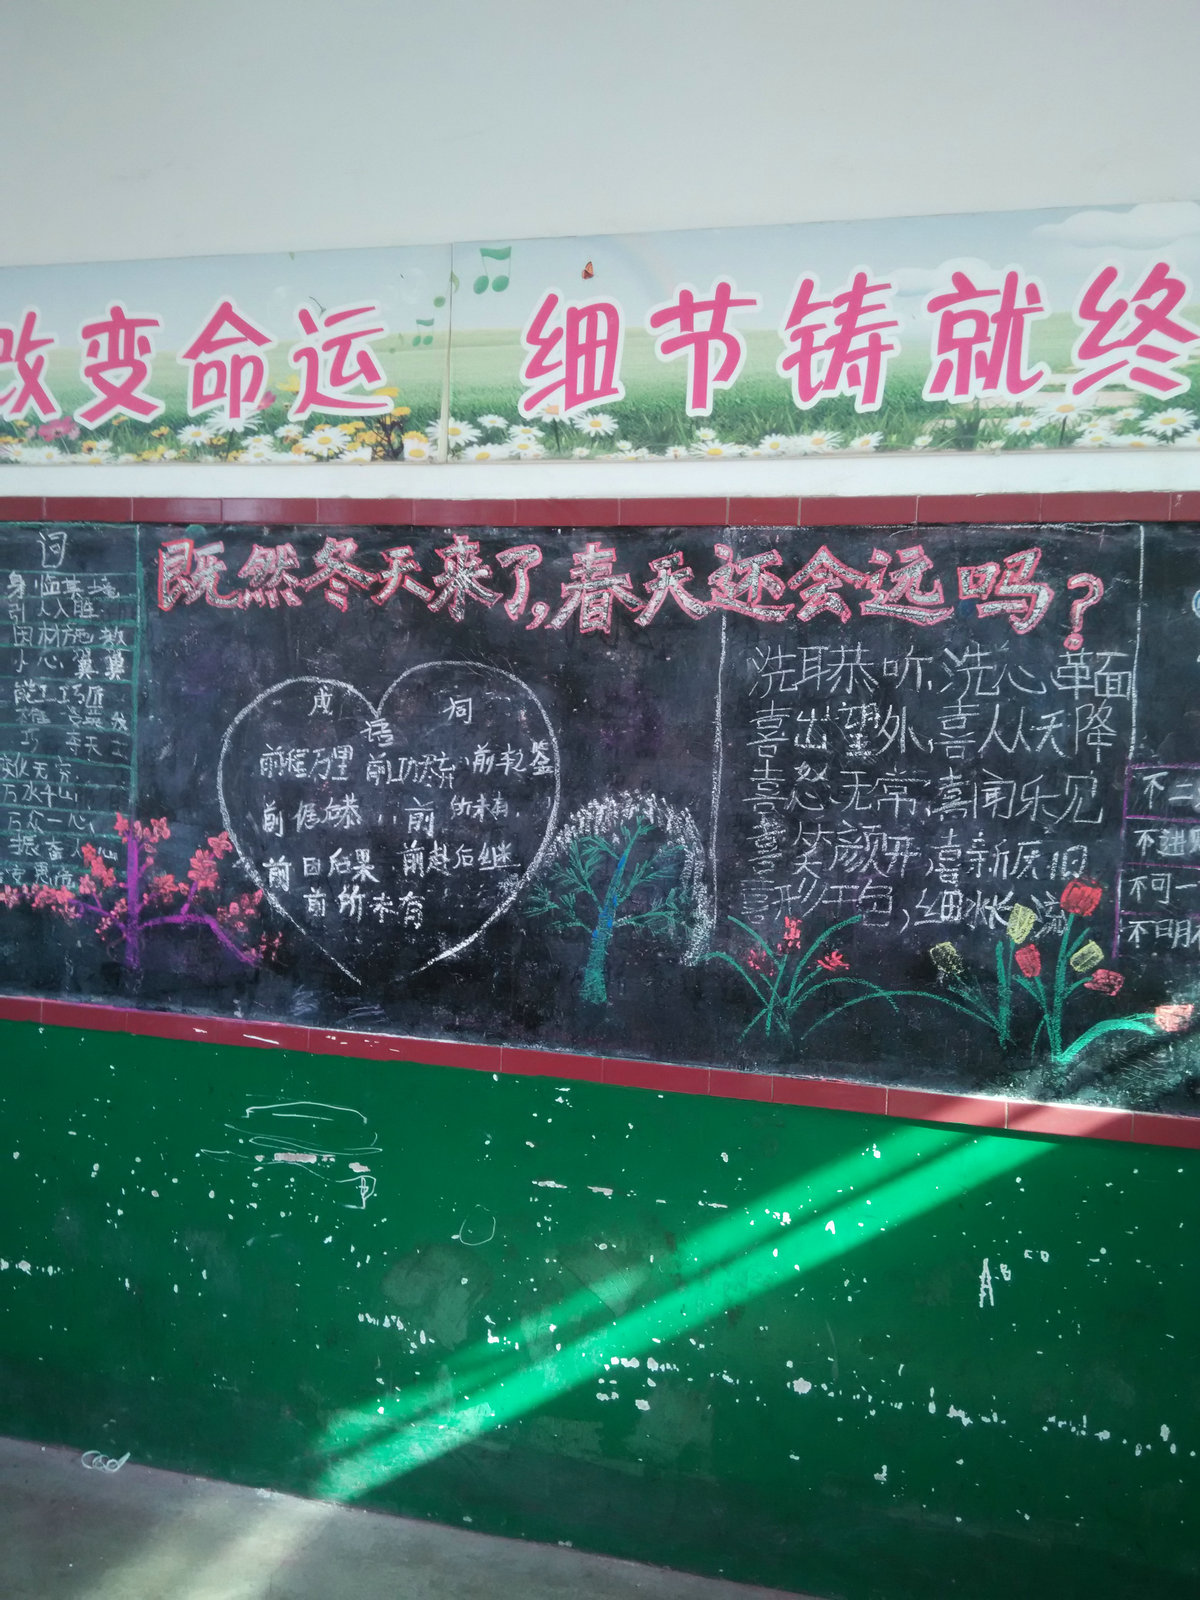 改变命运 细节铸就终
词
身临其境
引人入胜
因材施教
小心翼翼
能工巧匠
巧夺天工
变化无穷
万水千山
万众一心
振奋人心
既然冬天来了,春天还会远吗?
成语 词
前程万里 前功尽弃
前倨后恭 前所未有
前因后果 前赴后继
前所未有
洗耳恭听,洗心革面
喜出望外,喜从天降
喜怒无常,喜闻乐见
喜笑颜开,喜新厌旧
喜形于色,细水长流
不二
不进
不可一
不明
A B C D